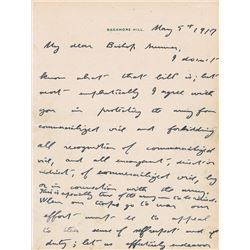 SAGAMORE HILL.
May 5th 1917
My dear Bishop Sumner,
I doesn't
know what that bill is; but
most emphatically I agree with
you in protecting the army from
commercialized vice, and forbidding
all recognition of commercialized
vice, and all encouragement, direct or
indirect, of commercialized vice, by
or in connection with the army.
This is especially true of the army
When our troops go to war our
effort must be to appeal
to their sense of self respect and of
duty; let us effectively endeavor